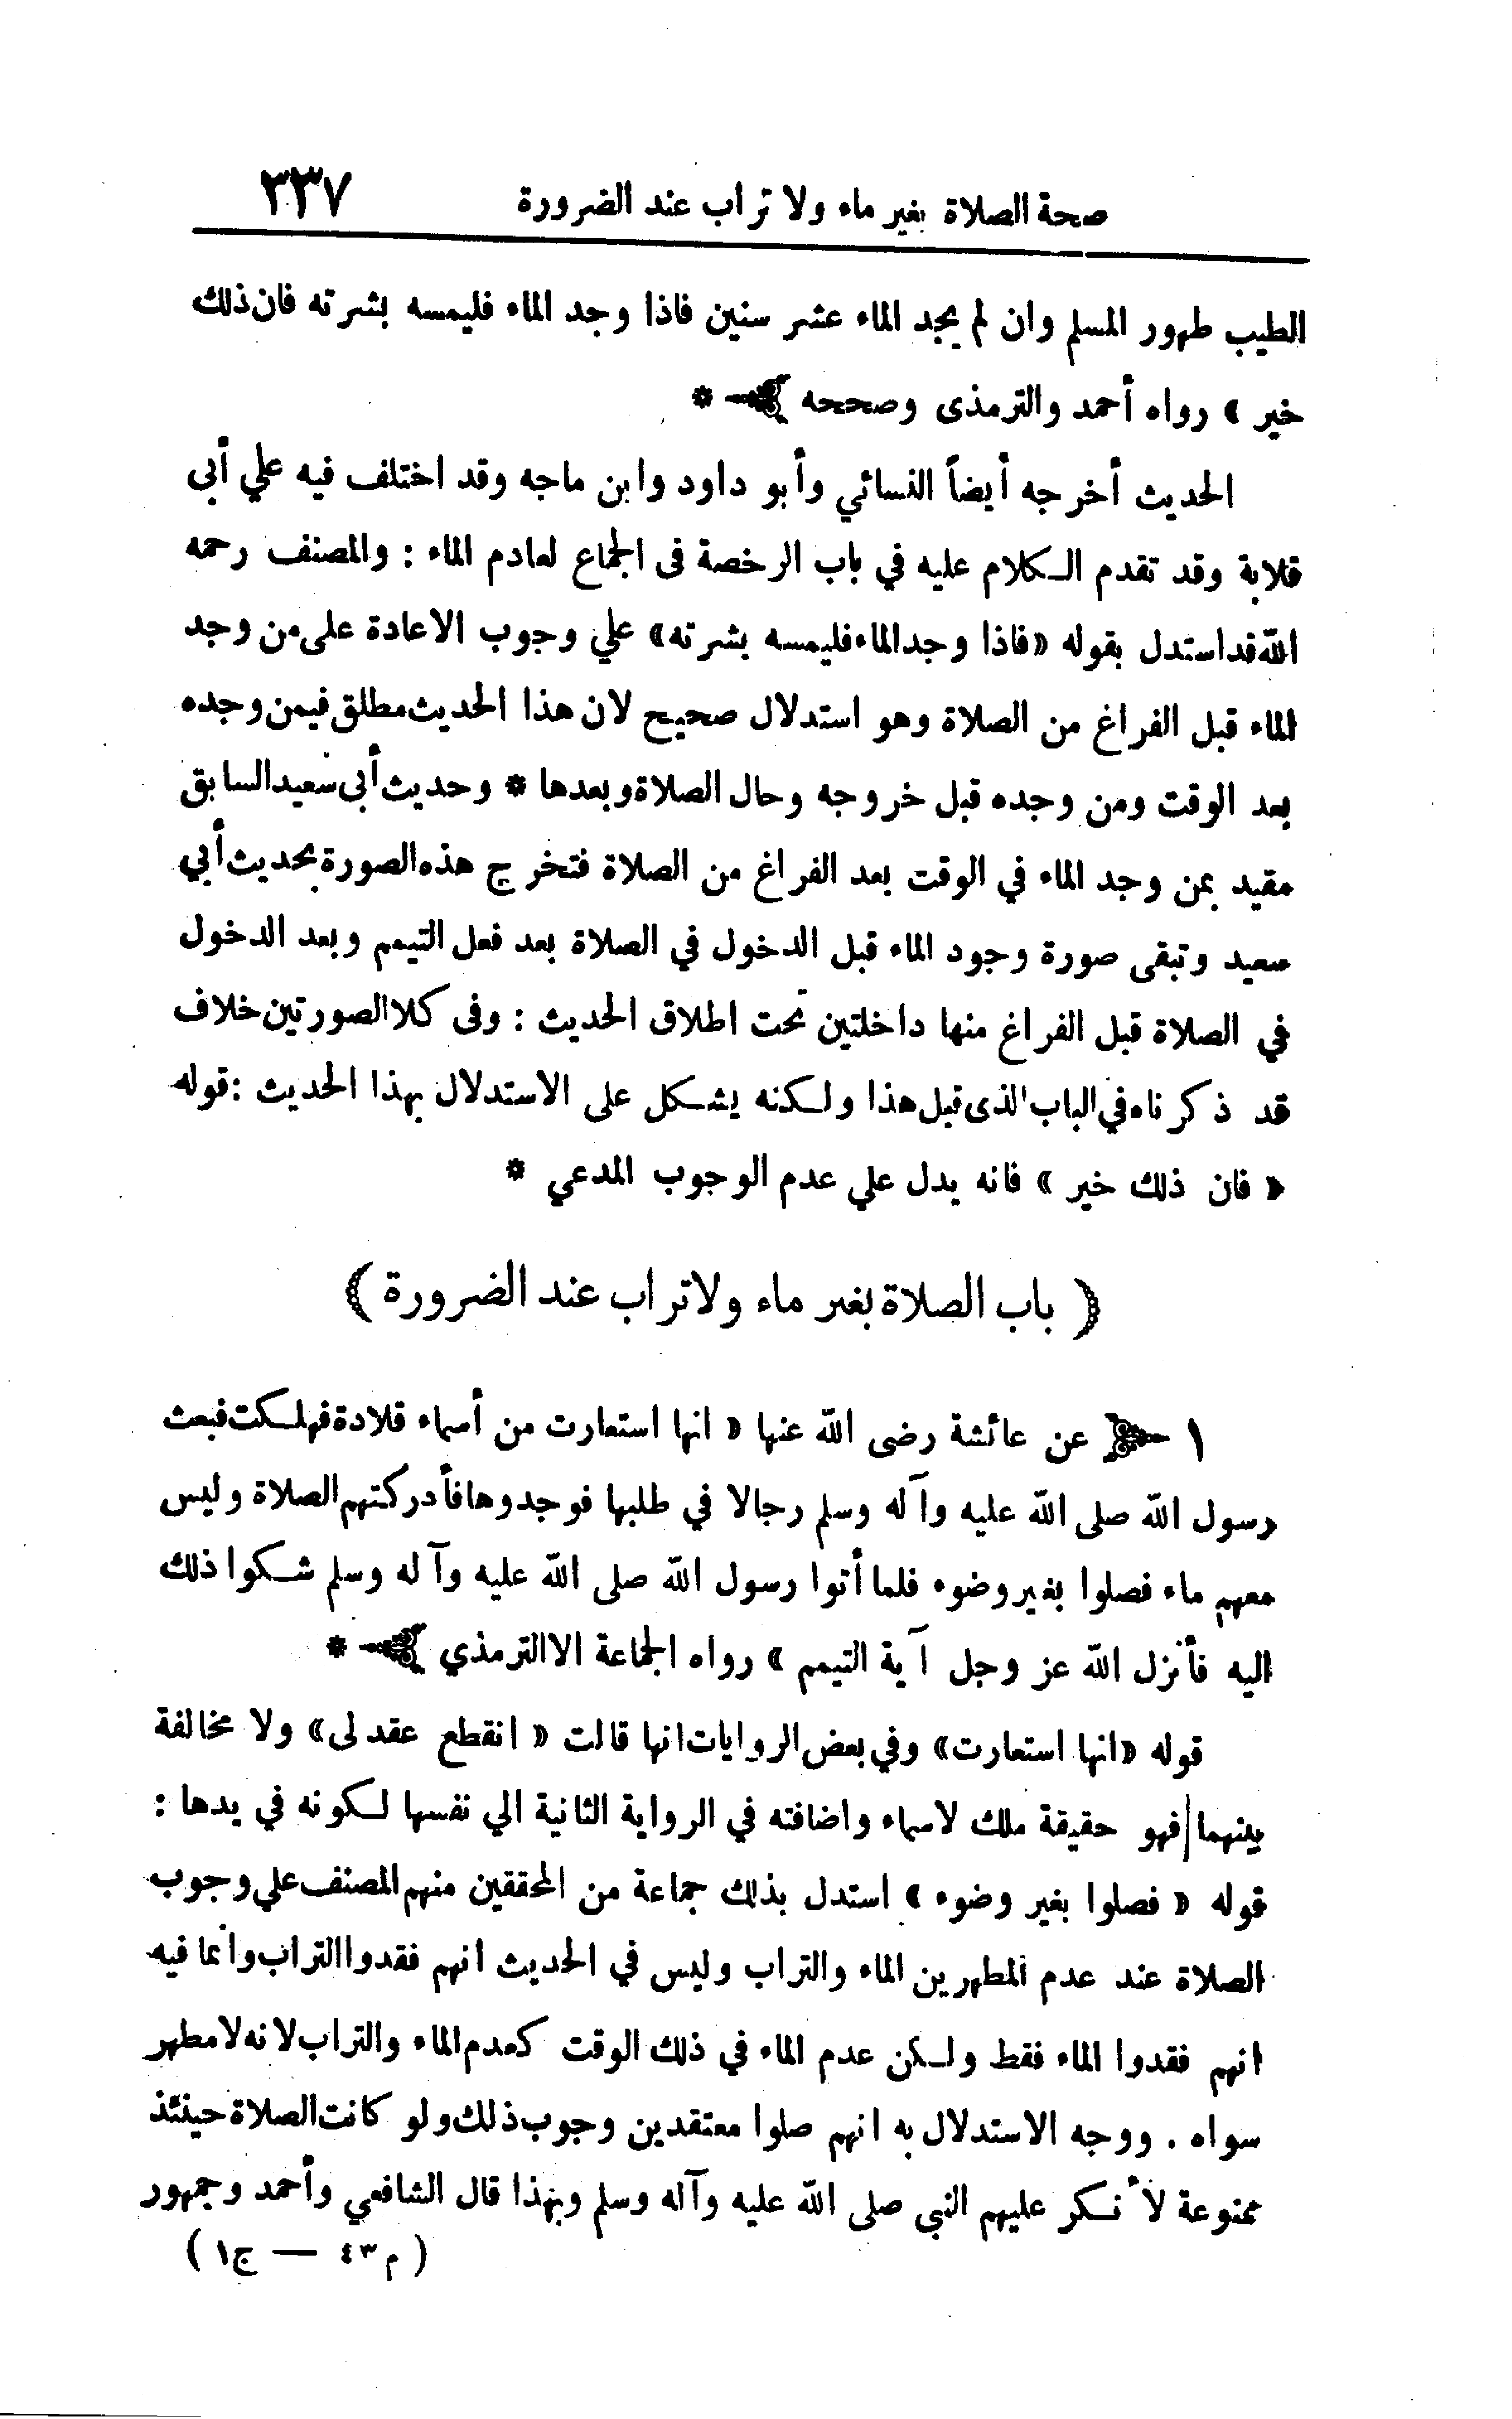 صحة الصلاة بغير ماء ولا تراب عند الضرورة ٣٣٧
الطيب طهور المسلم وان لم يجد الماء عشر سنين فاذا وجد الماء فليمسه بشرته فان ذلك
خير » رواه أحمد والترمذى وصححه *
الحديث أخرجه أيضاً النسائي وأبو داود وابن ماجه وقد اختلف فيه علي أبى
قلابة وقد تقدم الكلام عليه في باب الرخصة فى الجماع لعادم الماء : والمصنف رحمه
الله قد استدل بقوله « فاذا وجد الماء فليمسه بشرته» علي وجوب الاعادة على من وجد
الماء قبل الفراغ من الصلاة وهو استدلال صحيح لان هذا الحديث مطلق فيمن وجده
بعد الوقت ومن وجده قبل خروجه وحال الصلاة وبعدها * وحديث أبى سعيد السابق
مقيد بمن وجد الماء في الوقت بعد الفراغ من الصلاة فتخرج هذه الصورة بحديث أبي
سعيد وتبقى صورة وجود الماء قبل الدخول في الصلاة بعد فعل التيمم وبعد الدخول
في الصلاة قبل الفراغ منها داخلتين تحت اطلاق الحديث : وفى كلا الصورتين خلاف
قد ذكرناه في الباب الذى قبل هذا ولكنه يشكل على الاستدلال بهذا الحديث : قوله
« فان ذلك خير » فانه يدل علي عدم الوجوب المدعي *
( باب الصلاة بغير ماء ولا تراب عند الضرورة )
١ عن عائشة رضى الله عنها « انها استعارت من أسماء قلادة فهلكت فبعث
رسول الله صلى الله عليه وآله وسلم رجالا في طلبها فوجدوها فأدركتهم الصلاة وليس
معهم ماء فصلوا بغير وضوء فلما أتوا رسول الله صلى الله عليه وآله وسلم شكوا ذلك
اليه فأنزل الله عز وجل آية التيمم » رواه الجماعة الا الترمذي *
قوله «انها استعارت» وفي بعض الروايات انها قالت « انقطع عقد لى» ولا مخالفة
بينهما فهو حقيقة ملك لاسماء واضافته في الرواية الثانية الي نفسها لكونه في يدها :
قوله « فصلوا بغير وضوء » استدل بذلك جماعة من المحققين منهم المصنف علي وجوب
الصلاة عند عدم المطهرين الماء والتراب وليس في الحديث انهم فقدوا التراب وانما فيه
انهم فقدوا الماء فقط ولكن عدم الماء في ذلك الوقت كعدم الماء والتراب لانه لا مطهر
سواه . ووجه الاستدلال به انهم صلوا معتقدين وجوب ذلك ولو كانت الصلاة حينئذ
ممنوعة لأنكر عليهم النبى صلى الله عليه وآله وسلم وبهذا قال الشافعي وأحمد وجمهور
( م ٤٣ — ج ١ )